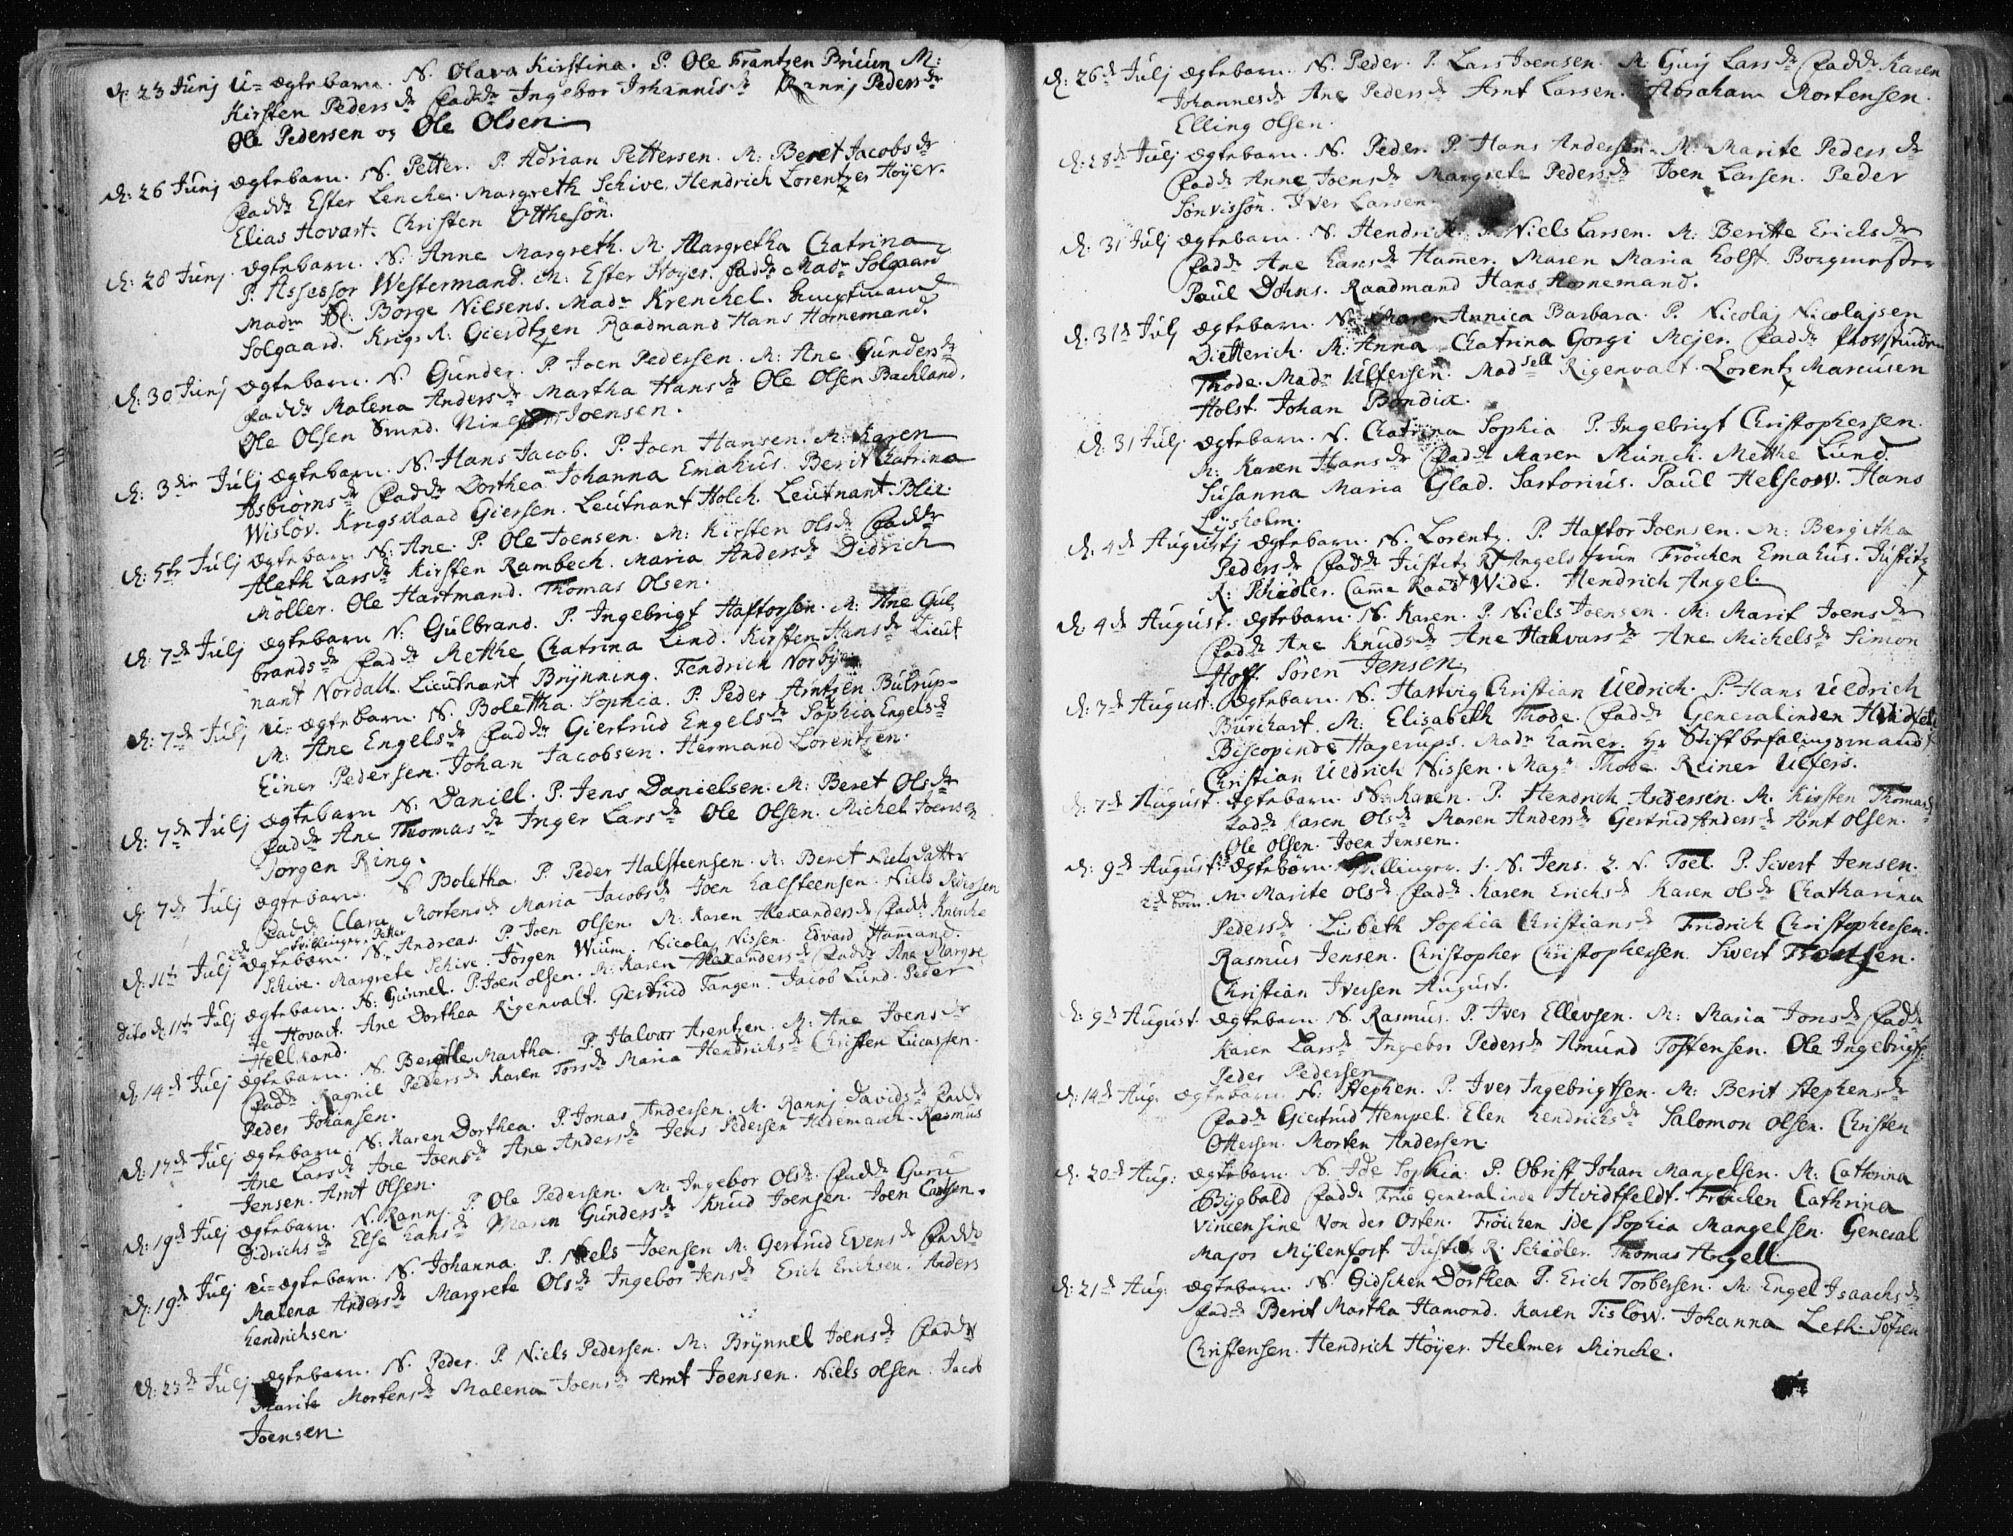 d: 23 Junj U-ægtebarn. N. Olava Kirstina. P. Ole Frantzen Bricun M:
Kirsten Pedersdr Fadde Ingebor Johannisdr Rannj Pedersdr
Ole Pedersen og Ole Olsen.
d: 26 Junj ægtebarn. N. Petter. P. Adrian Pettersen. M: Beret Jacobsdr
Fadde Ester Lenche. Margreth Schive. Hendrich Lorentzes Höyer.
Elias Hovart. Christen Ottheson.
d: 28 Junj. ægtebarn. N. Anne Margreth. M. Margretha Chatrina
P. Assessor Westermand. M: Ester Höyer. Fadde Madm Solgaard
Madm Borge Nilsens. Madm Krenchel.
Solgaard. Krigs R: Gierdtzen Raadmand Hans Hornemand.
d: 30 Junj ægtebarn. N. Gunder. P. Joen Pedersen. M: Ane Gundersdr
Fadde Malena Andersdr Martha Hansdr Ole Olsen Backland.
Ole Olsen Svend. Niels Joensen.
d: 3die Julj ægtebarn. N. Hans Jacob. P. Joen Hansen. M. Karen
Asbiörnsdr Fadde Dorthea Johanna Emahus. Berit Catrina
Wislöv. Krigsraad Giersen. Leutnant Holch. Leutnant Blix.
d: 5te Julj ægtebarn N: Ane. P. Ole Joensen. M: Kirsten Olsdr Fadde
Aleth Larsdr Kirsten Rambech. Maria Andersdr Didrich
Möller. Ole Hartmand. Thomas Olsen.
d: 7de Julj ægtebarn N: Gulbrand. P. Ingebrigt Haftorsön. M: Ane Gul
brandsdr Fadde Methe Chatrina Lind. Kirsten Hansdr Lieut
nant Nordall. Lieutnant Brÿnning. Fendrich Norbye
d: 7de Julj u-ægtebarn. N. Bolettha Sophia. P. Peder Arntzen Bulrup
M: Ane Engelsdr Fadde Giertrud Engelsdr Sophia Engelsdr
Einer Pedersen. Johan Jacobsen. Hermand Lorentzen.
d: 7de Julj ægtebarn N: Daniel. P. Jens Danielsen. M: Beret Olsdr
Fadde Ane Thomasdr Inger Larsdr Ole Olsen. Michel Joensen
Jorgen Ring.
d: 7de Julj ægtebarn. N Boletha. P. Peder Halsteensen. M: Beret Nielsdatte
Fadde Clara Mortensdr Maria Jacobsdr Joen Halsteensen. Niels
d: 11te Julj ægtebørn. Tvillinger. Petter N. Andreas. P. Joen Olsen. M: Karen Alexandersdr Fadde
Schive. Margrete Schive. Jörgen Wium. Nicolaj Nissen. Edvard Hammand.
dito d: 11te Julj ægtebarn. N: Gunnel. P. Joen olsen. M: Karen Alexandersdr Fadde Ane Margre
te Hovart. Ane Dorthea Rigenvalt. Gertrud Tangen. Jacob Lund. Peder
Hellrand.
d: 14de Julj ægtebarn. N. Berethe Martha. P. Halvor Arentzen. M: Ane Joensdr
Fadde Ragnil Pedersdr Karen Torsdr Maria Hendrichsdr Christen Lucassen.
Peder Johansen.
d: 17de Julj ægtebarn. N: Karen Dorthea. P. Jonas Andersen. M. Rannj Davidsdr Fadde
Ane Larsdr Ane Joensdr Ane Andersdr Jens Pedersen Hedemarch. Rasmus
Jensen. Arnt Olsen.
d: 19de Julj ægtebarn. N. Rannj. P. Ole Pedersen. M. Ingebor Olsdr Fadde Guru
Didrichsdr Else Hansdr Maren Gundersdr Knud Joensen. Joen Carlsen.
d: 19de Julj u-ægtebarn. N. Johanna. P. Niels Joensen M: Gertrud Evensdr Fadde
Malena Andersdr Margrete Olsdr Ingebor Jensdr Erich Erichsen. Anders
Hendrichsen.
d: 23de Julj ægtebarn. N. Peder. P. Niels Pedersen. M: Brÿnnel Joensdr Fadde
Marite Mortensdr Malena Joensdr Arnt Joensen. Niels Olsen. Jacob
Joensen.
d: 26de Julj ægtebarn. N. Peder. P. Lars Joensen. M. Gurj Larsdr Fadde Karen
Johannesdr Ane Pedersdr Arnt Larsen. Abraham Mortensen.
Elling Olsen.
d: 28de Julj ægtebarn. N. Peder. P. Hans Andersen. M. Marite Pedersdr
Fadde Anne Joensdr Margrete Pedersdr Joen Larsen. Peder
Sönvissön. Iver Larsen.
d: 31 Julj ægtebarn. N. Hendrich. P. Niels Larsen. M: Beritte Ericksdr
Fadde Ane Hansdr Hamer. Maren Maria Holst. Borgmester
Paul Döhns. Raadmand Hans Hornemand.
d: 31d Julj ægtebarn. N. Maren Annica Barbara. P. Nicolaj Nicolajsen
Dietterich. M: Anna Chatrina Gorgi Mejer. Fadde
Thode. Madm Ulfersen. Madsell Rigenvalt. Lorentz Marcusen
Holst. Johan Bondix.
d: 31 Julj. ægtebarn. N. Chatrina Sophia P. Ingebrigt Christophersen.
M. Karen Hansdr Fadde Maren Münch. Methe Lund.
Susanna Maria Glad. Sartorius. Paul Helscow. Hans
Lÿsholm.
d: 4de Augustj ægtebarn. N. Lorentz. P. Haftor Joensen. M: Bergitha
Pedersdr Fadde Justitz R: Angels frue Fröichen Emahus. Justitz
R: Schiöler. Came Raad Wide. Hendrich Angel.
d: 4de August. ægtebarn. N. Karen. P. Niels Joensen. M: Marit Joensdr
Fadde Ane Knudsdr Ane Halvorsdr Ane Michelsdr Simon
Hoff. Sören Jensen.
d: 7de August. Ægtebarn. N. Hartvig Christian Uldrich. P. Hans Uldrich
Burchart. M: Elisabeth Thode. Fadde Generalinden Hvidtfelt
Biscopinde Hagerups. Madm Hamer. Hr Stiftbefalingsmand
Christian Uldrich Nissen. Magr Thode. Reiner Ulfers.
d: 7de August. ægtebarn. N: Karen. P. Hendrich Andersen. M. Kirsten Thomasdr
Fadde Karen Olsdr Maren Andersdr Gertrud Andersdr Arnt Olsen.
Ole Olsen. Joen Jensen.
d: 9de August: ægtebørn. Tvillinger. 1. N. Jens. 2. N. Joel. P. Sivert Jensen.
2de børn. M: Marite Olsdr Fadde Karen Erichsdr Karen Olsdr Chatharina
Pedersdr Lisbeth Sophia Christiansdr Fridrich Christophersen.
Rasmus Jensen. Christopher Christophersen. Sivert Trontsen.
Christian Iversen August.
d: 9de August. ægtebarn. N. Rasmus. P. Iver Ellevsen. M: Maria Jonsdr Fadde
Karen Larsdr Ingebor Pedersdr Amund Tostensen. Ole Ingebrigts
Peder Pedersen
d: 14de Aug. ægtebarn. N: Stephen. P. Iver Ingebrigtsen. M: Berit Stephensdr
Fadde Giertrud Hempel. Elen Hendrichsdr Salomon Olsen. Christen
Ottersen. Morten Andersen.
d: 20de Aug: ægtebarn. N. Ide Sophia. P. Obrist Johan Mangelsen. M: Cathrina
Bÿgbald Fadde Frue Generalinde Hvidtfeldt. Fröichen Cathrina
Vincensine Von der Osten. Fröichen Ide Sophia Mangelsen. General
Major Mÿlenfort Justits R. Schiöler. Thomas Angell.
d: 21de Aug. ægtebarn. N. Gidschen Dorthea P. Erich Torbersen. M: Engel Isaachsdr
Fadde Berit Martha Hamond. Karen Tislöw. Johanna Leth. Sofren
Christensen. Hendrich Höyer. Helmer Minche.